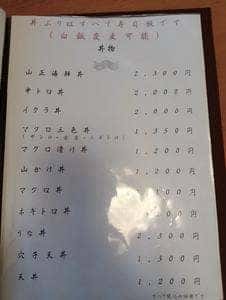 丼ぶりはすべて寿司飯です
(白飯変更可能)
丼物
山正海鮮丼 2,300円
中トロ丼 2,500円
イクラ丼 2,000円
マグロ三色丼 1,350円
マグロ漬け丼 1,200円
山かけ丼 1,200円
マグロ丼
ネギトロ丼
うな丼 2,500円
穴子天丼 1,500円
天丼 1,200円